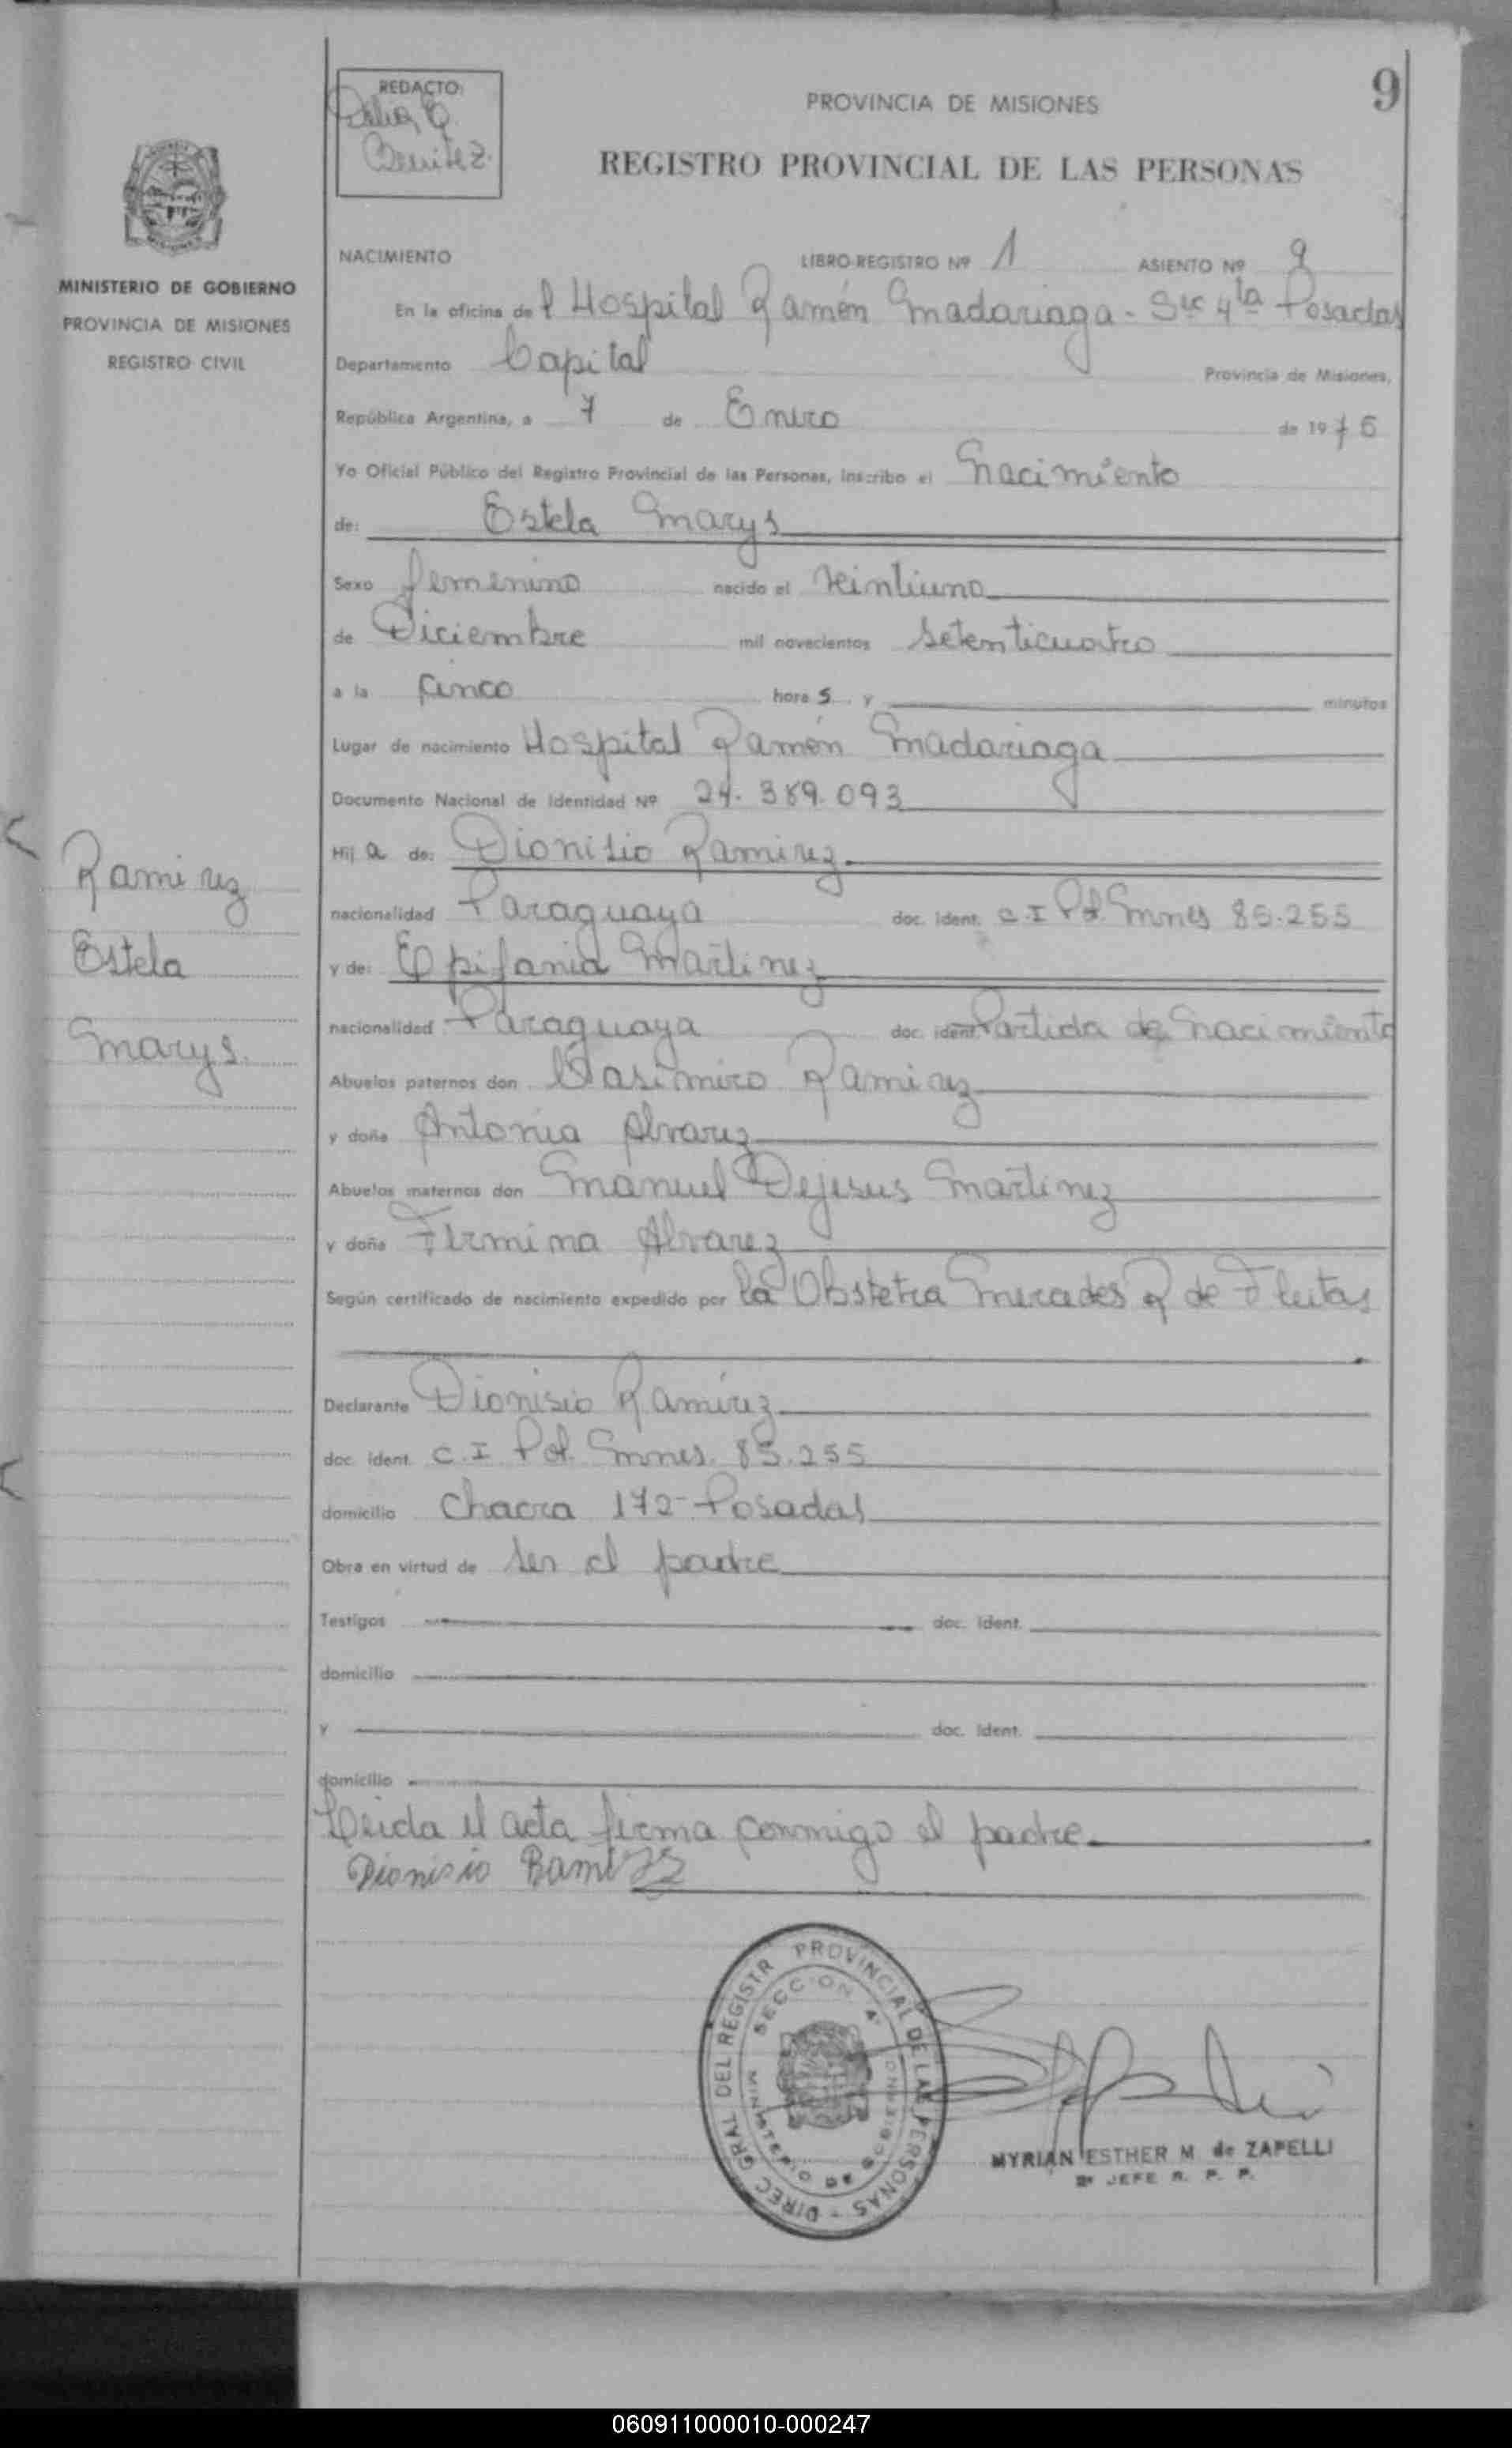 REDACTO:
Delia G.
Benitez.
9
PROVINCIA DE MISIONES
REGISTRO PROVINCIAL DE LAS PERSONAS
MINISTERIO DE GOBIERNO
PROVINCIA DE MISIONES
REGISTRO CIVIL
NACIMIENTO LIBRO-REGISTRO Nº 1 ASIENTO Nº 9
En la oficina del Hospital Ramón Madariaga - Sec 4ta Posadas
Departamento Capital Provincia de Misiones,
República Argentina, a 7 de Enero de 1975
Yo Oficial Público del Registro Provincial de las Personas, inscribo el Nacimiento
de: Estela Marys
Sexo femenino nacido el Veintiuno
de Diciembre mil novecientos Setenticuatro
a la Cinco hora s y minutos
Lugar de nacimiento Hospital Ramón Madariaga
Documento Nacional de Identidad Nº 24.389.093
Hij a de: Dionisio Ramirez
nacionalidad Paraguaya doc. ident. C.I Pol. Mnes 85.255
y de: Epifania Martinez
nacionalidad Paraguaya doc. ident. Partida de Nacimiento
Abuelos paternos don Casimiro Ramirez
y doña Antonia Alvarez
Abuelos maternos don Manuel Dejesus Martinez
y doña Firmina Alvarez
Según certificado de nacimiento expedido por la Obstetra Mercades R de Fleitas
Declarante Dionisio Ramirez
doc. ident. C.I. Pol. Mnes. 85.255
domicilio Chacra 172 - Posadas
Obra en virtud de ser el padre
Testigos doc. ident.
domicilio
y doc. ident.
domicilio
Leida el acta firma conmigo el padre
Dionisio Ramirez
Ramirez
Estela
Marys.
DIREC GRAL DEL REGISTR PROVINCIAL DE LAS PERSONAS -
SECCION 4ª
MINISTERIO DE GOBIERNO
MYRIAN ESTHER M de ZAPELLI
2º JEFE R. P. P.
060911000010-000247